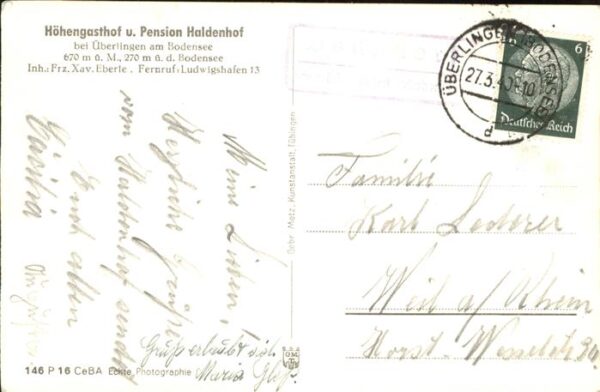 Höhengasthof u. Pension Haldenhof
bei Überlingen am Bodensee
670 m ü. M., 270 m ü. d. Bodensee
Inh.: Frz. Xav. Eberle . Fernruf: Ludwigshafen 13
Meine Lieben,
Herzliche Grüsse
vom Haldenhof sendet
Euch allen
Cäcilia
Gruß erlaubt sich
Maria
146 P 16 CeBA Echte Photographie
Gebr. Metz, Kunstanstalt, Tübingen
ÜBERLINGEN (BODENSEE)
27.3.40
10
d
6
Deutsches Reich
Familie
Karl Lederer
Weil a/Rhein
Horst-Wesselstr